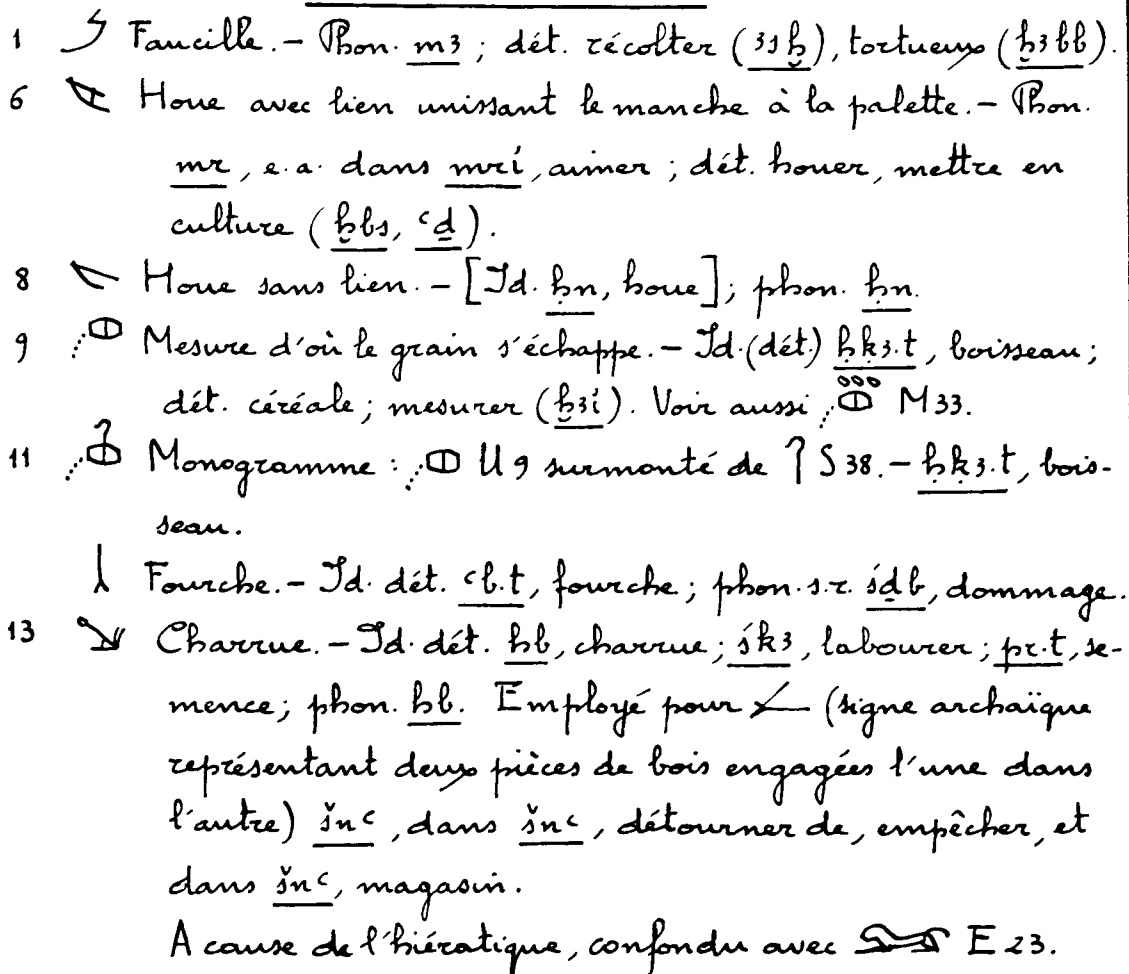 1 Faucille. – Phon. mꜣ ; dét. récolter (ꜣsḫ), tortueux (ḫꜣbb).
6 Houe avec lien unissant le manche à la palette. – Phon.
mr, e.a. dans mrí, aimer ; dét. houer, mettre en
culture (ḫbs, ꜥḏ).
8 Houe sans lien. – [Id. ḥn, houe]; phon. ḥn.
9 Mesure d'où le grain s'échappe. – Id. (dét.) ḥḳꜣ.t, boisseau;
dét. céréale; mesurer (ḫꜣí). Voir aussi M 33.
11 Monogramme : U 9 surmonté de S 38. – ḥḳꜣ.t, bois-
seau.
Fourche. – Id. dét. ꜥb.t, fourche; phon. s.r. śḏb, dommage.
13 Charrue. – Id. dét. hb, charrue; śkꜣ, labourer; pr.t, se-
mence; phon. hb. Employé pour (signe archaïque
représentant deux pièces de bois engagées l'une dans
l'autre) šnꜥ, dans šnꜥ, détourner de, empêcher, et
dans šnꜥ, magasin.
A cause de l'hiératique, confondu avec E 23.